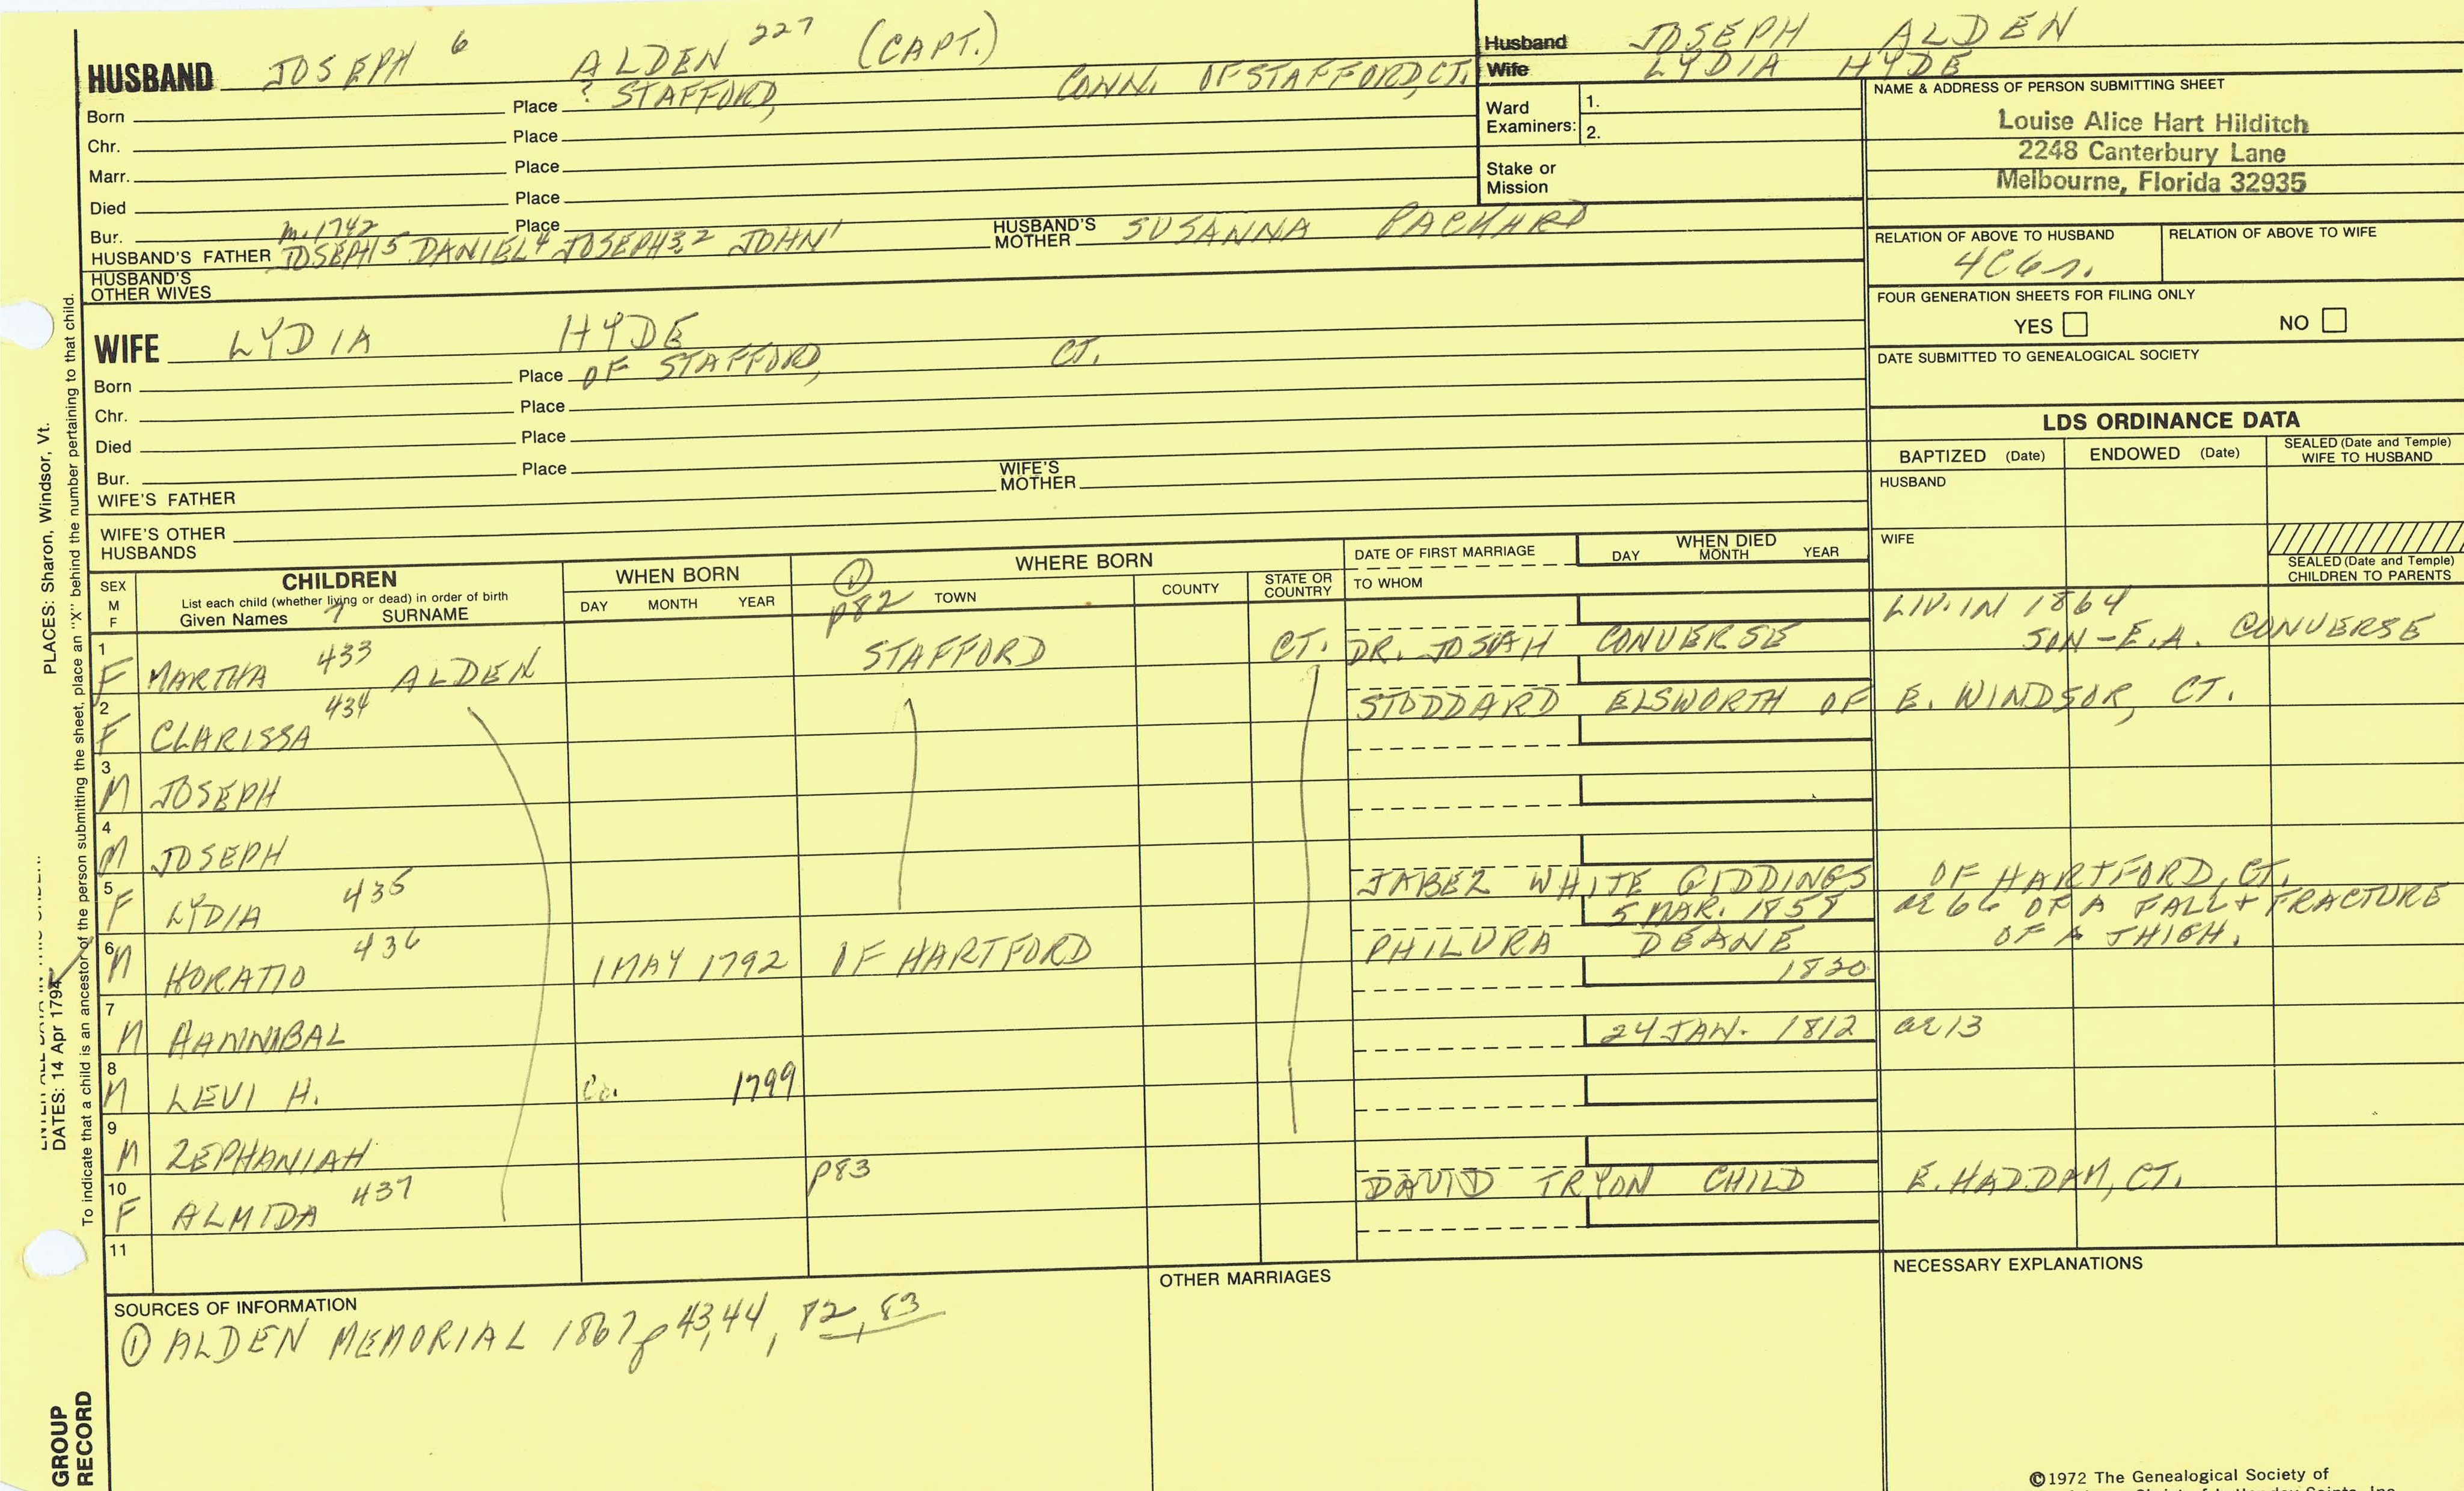 HUSBAND JOSEPH 6 ALDEN 227 (CAPT.)
Born Place ? STAFFORD, CONN. OF STAFFORD, CT.
Chr. Place
Marr. Place
Died Place
Bur. Place
m. 1742
HUSBAND'S FATHER JOSEPH5 DANIEL4 JOSEPH3,2 JOHN1 HUSBAND'S MOTHER SUSANNA PACKARD
HUSBAND'S OTHER WIVES
WIFE LYDIA HYDE
Born Place OF STAFFORD, CT.
Chr. Place
Died Place
Bur. Place
WIFE'S FATHER WIFE'S MOTHER
WIFE'S OTHER HUSBANDS
Husband JOSEPH ALDEN
Wife LYDIA HYDE
Ward Examiners: 1.
2.
Stake or Mission
NAME & ADDRESS OF PERSON SUBMITTING SHEET
Louise Alice Hart Hilditch
2248 Canterbury Lane
Melbourne, Florida 32935
RELATION OF ABOVE TO HUSBAND RELATION OF ABOVE TO WIFE
4C6r.
FOUR GENERATION SHEETS FOR FILING ONLY
YES NO
DATE SUBMITTED TO GENEALOGICAL SOCIETY
LDS ORDINANCE DATA
BAPTIZED (Date) ENDOWED (Date) SEALED (Date and Temple) WIFE TO HUSBAND
HUSBAND
WIFE
SEALED (Date and Temple) CHILDREN TO PARENTS
SEX M F
CHILDREN
List each child (whether living or dead) in order of birth
Given Names 7 SURNAME
WHEN BORN
DAY MONTH YEAR
WHERE BORN
① p82 TOWN COUNTY STATE OR COUNTRY
DATE OF FIRST MARRIAGE
TO WHOM
WHEN DIED
DAY MONTH YEAR
1 F MARTHA 433 ALDEN STAFFORD CT. DR. JOSIAH CONVERSE LIV. IN 1864
SON - E.A. CONVERSE
2 F CLARISSA 434 STODDARD ELSWORTH OF E. WINDSOR, CT.
3 M JOSEPH
4 M JOSEPH
5 F LYDIA 435 JABEZ WHITE GIDDINGS OF HARTFORD, CT.
6 M HORATIO 436 1 MAY 1792 OF HARTFORD PHILURA DEANE 5 MAR. 1858 ae 66 OF A FALL + FRACTURE
OF A THIGH.
7 M HANNIBAL 1820
8 M LEVI H. Ca. 1799 24 JAN. 1812 ae 13
9 M ZEPHANIAH
10 F ALMIDA 437 p83 DAVID TRYON CHILD E. HADDAM, CT.
11
SOURCES OF INFORMATION
① ALDEN MEMORIAL 1867 p 43,44, 82, 83
OTHER MARRIAGES
NECESSARY EXPLANATIONS
©1972 The Genealogical Society of
PLACES: Sharon, Windsor, Vt.
DATES: 14 Apr 1794
To indicate that a child is an ancestor of the person submitting the sheet, place an "X" behind the number pertaining to that child.
GROUP RECORD